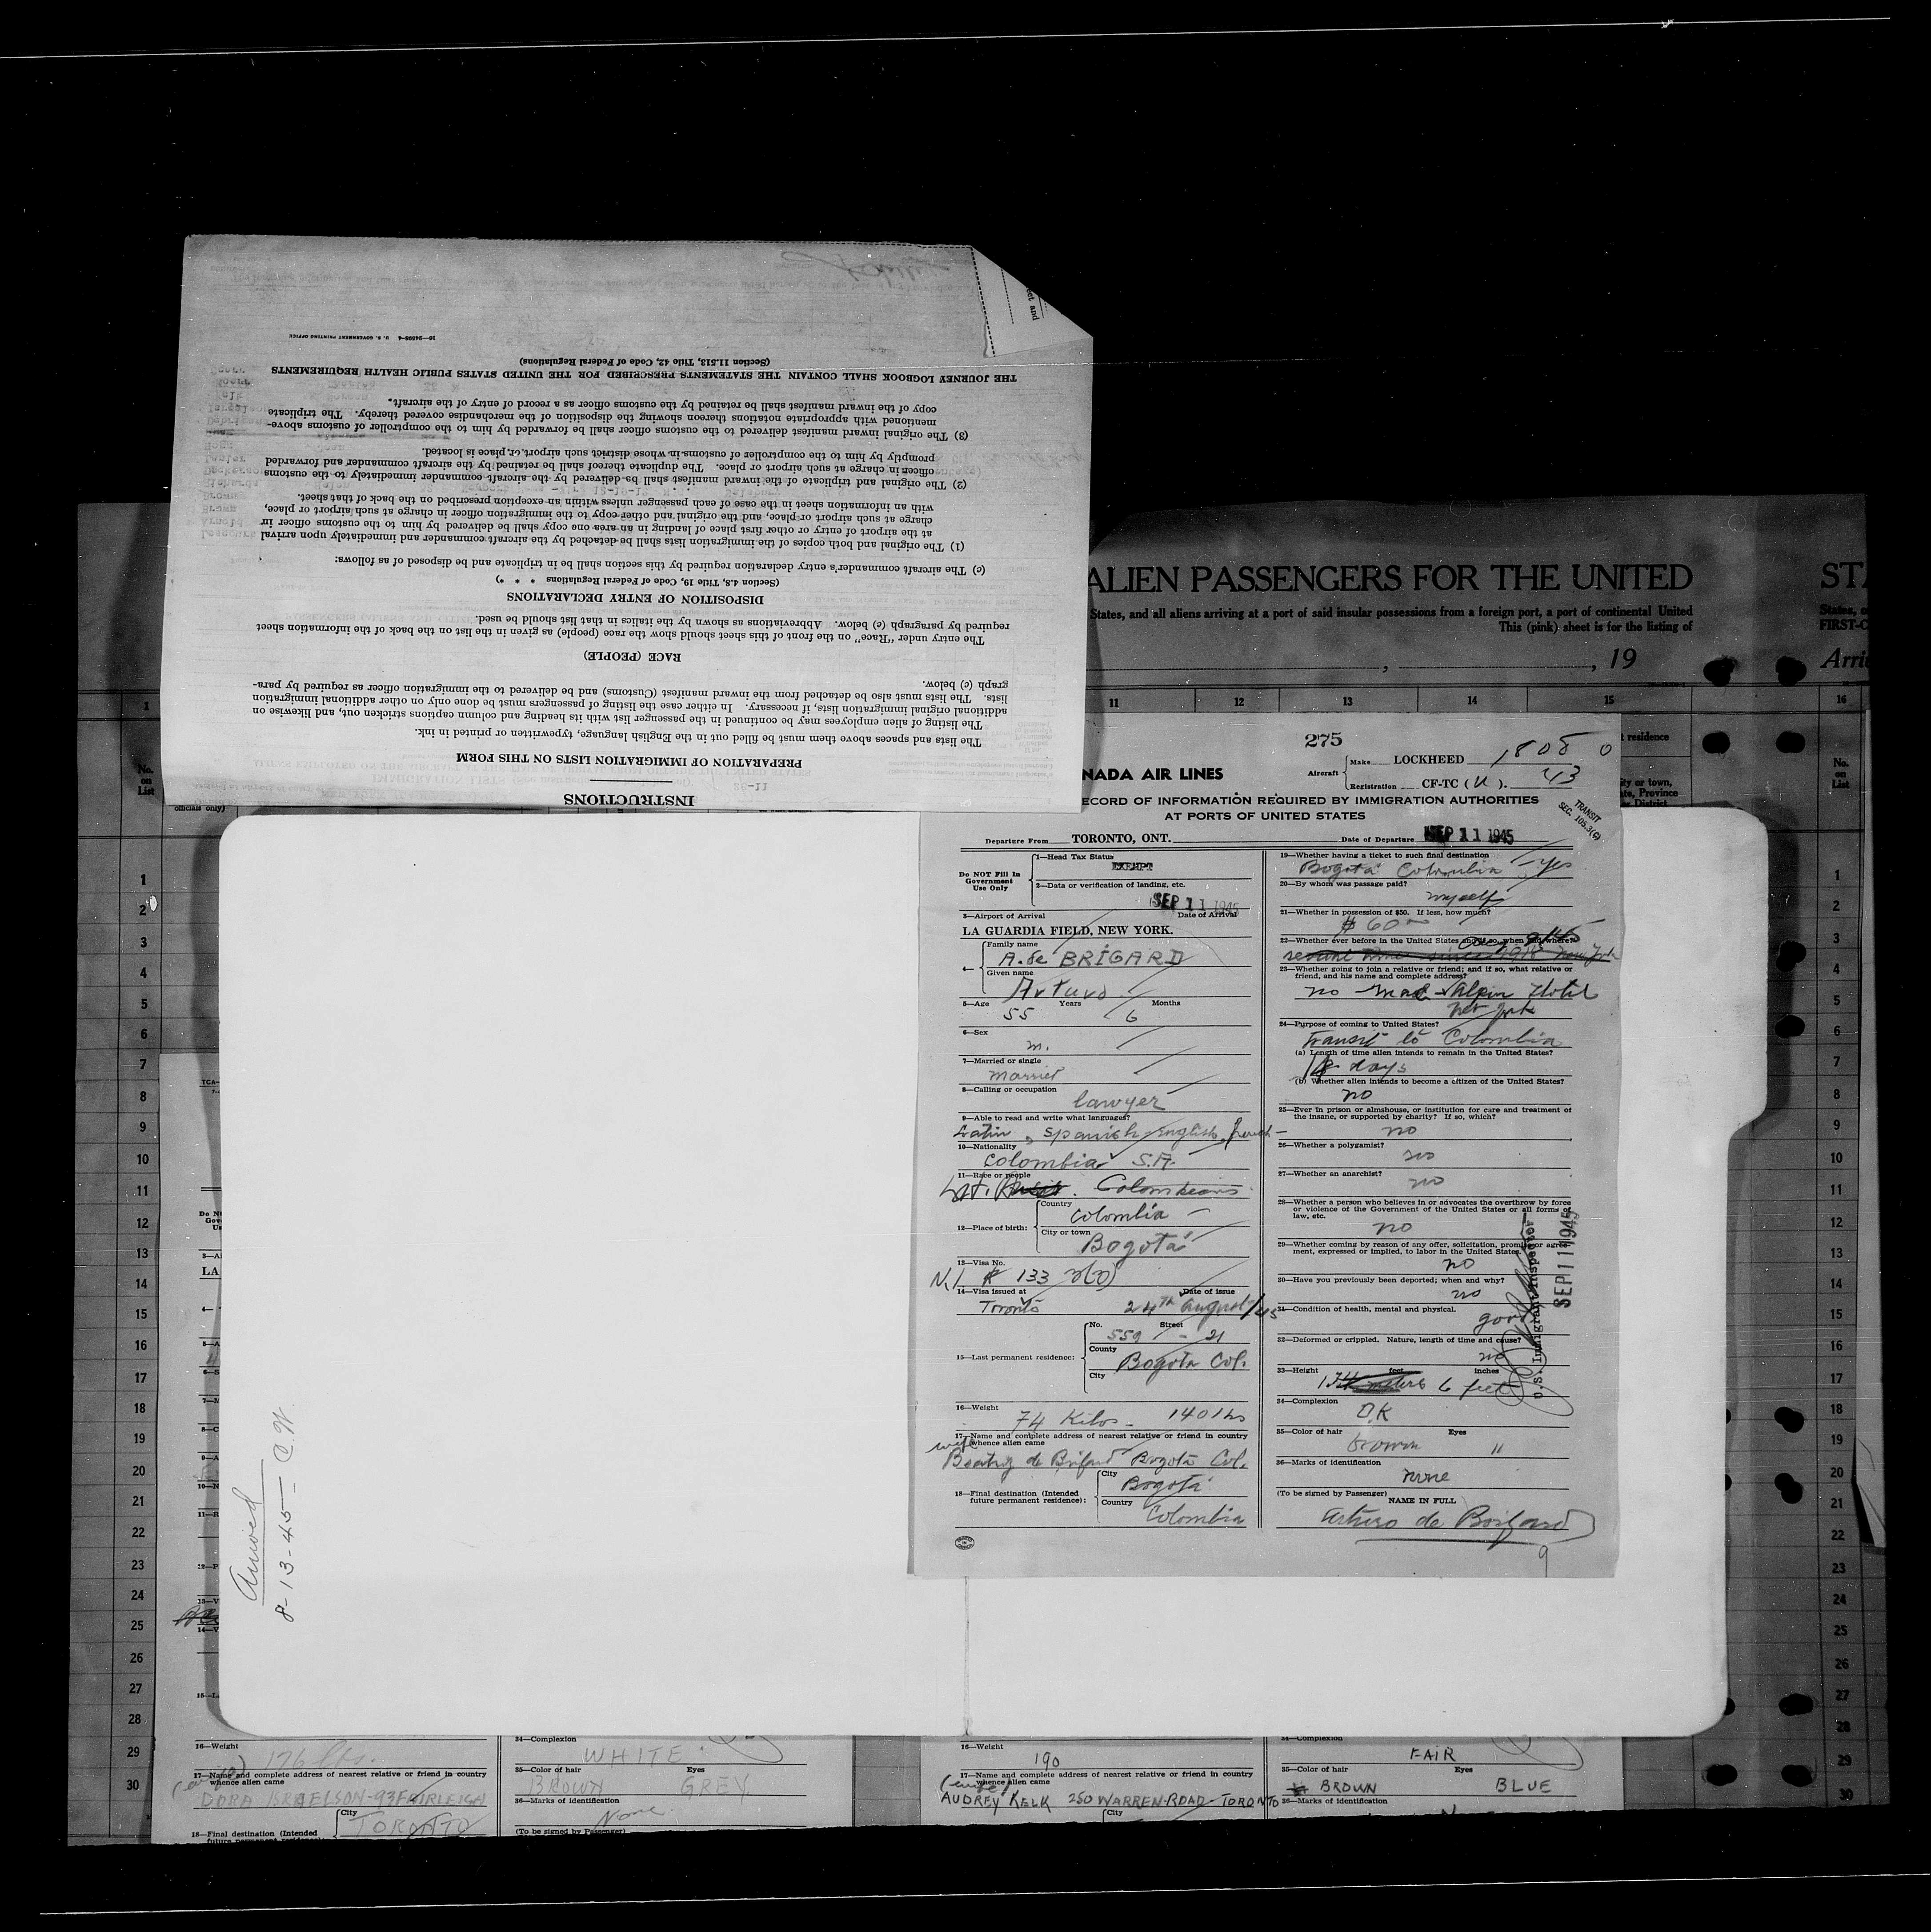 INSTRUCTIONS
PREPARATION OF IMMIGRATION LISTS ON THIS FORM
The lists and spaces above them must be filled out in the English language, typewritten or printed in ink.
The listing of alien employees may be continued in the passenger list with its heading and column captions stricken out, and likewise on
additional original immigration lists, if necessary. In either case the listing of passengers must be done only on other additional immigration
lists. The lists must also be detached from the inward manifest (Customs) and be delivered to the immigration officer as required by para-
graph (c) below.
RACE (PEOPLE)
The entry under "Race" on the front of this sheet should show the race (people) as given in the list on the back of the information sheet
required by paragraph (c) below. Abbreviations as shown by the italics in that list should be used.
DISPOSITION OF ENTRY DECLARATIONS
(Section 4.8, Title 19, Code of Federal Regulations * * *)
(c) The aircraft commander's entry declaration required by this section shall be in triplicate and be disposed of as follows:
(1) The original and both copies of the immigration lists shall be detached by the aircraft commander and immediately upon arrival
at the airport of entry or other first place of landing in an area one copy shall be delivered by him to the customs officer in
charge at such airport or place, and the original and other copy to the immigration officer in charge at such airport or place,
with an information sheet in the case of each passenger unless within an exception prescribed on the back of that sheet.
(2) The original and triplicate of the inward manifest shall be delivered by the aircraft commander immediately to the customs
officer in charge at such airport or place. The duplicate thereof shall be retained by the aircraft commander and forwarded
promptly by him to the comptroller of customs in whose district such airport or place is located.
(3) The original inward manifest delivered to the customs officer shall be forwarded by him to the comptroller of customs above-
mentioned with appropriate notations thereon showing the disposition of the merchandise covered thereby. The triplicate
copy of the inward manifest shall be retained by the customs officer as a record of entry of the aircraft.
THE JOURNEY LOGBOOK SHALL CONTAIN THE STATEMENTS PRESCRIBED FOR THE UNITED STATES PUBLIC HEALTH REQUIREMENTS
(Section 11.513, Title 42, Code of Federal Regulations)
U. S. GOVERNMENT PRINTING OFFICE
ALIEN PASSENGERS FOR THE UNITED
States, and all aliens arriving at a port of said insular possessions from a foreign port, a port of continental United
This (pink) sheet is for the listing of
, 19
11 12 13 14 15 16
275
NADA AIR LINES
Aircraft
Make LOCKHEED 1808 0
Registration CF-TC (U). 43
ECORD OF INFORMATION REQUIRED BY IMMIGRATION AUTHORITIES
AT PORTS OF UNITED STATES
TRANSIT
SEC. 105.3(G)
Departure From TORONTO, ONT.
Date of Departure SEP 11 1945
Do NOT Fill In
Government
Use Only
1—Head Tax Status
EXEMPT
2—Data or verification of landing, etc.
SEP 11 1945
3—Airport of Arrival
Date of Arrival
LA GUARDIA FIELD, NEW YORK.
4—
Family name
A. de BRIGARD
Given name
Arturo
5—Age Years Months
55 6
6—Sex
m.
7—Married or single
married
8—Calling or occupation
lawyer
9—Able to read and write what languages?
Latin, spanish english, french
10—Nationality
Colombia S.A.
11—Race or people
Colombians
12—Place of birth:
Country
Colombia
City or town
Bogotá
13—Visa No.
N.I. # 133 3(3)
14—Visa issued at Date of issue
Toronto 24th august/45
15—Last permanent residence:
No. Street
559 - 21
County
Bogota Col.
City
16—Weight
74 Kilos - 140 lbs
17—Name and complete address of nearest relative or friend in country
whence alien came
wife
Beatriz de Brigard Bogota Col.
18—Final destination (Intended
future permanent residence):
City
Bogotá
Country
Colombia
19—Whether having a ticket to such final destination
Bogotá Colombia - yes
20—By whom was passage paid?
myself
21—Whether in possession of $50. If less, how much?
$ 60
22—Whether ever before in the United States and if so, when and where?
23—Whether going to join a relative or friend; and if so, what relative or
friend, and his name and complete address?
no Mac Alpin Hotel
24—Purpose of coming to United States?
Transit to Colombia
(a) Length of time alien intends to remain in the United States?
days
(b) Whether alien intends to become a citizen of the United States?
no
25—Ever in prison or almshouse, or institution for care and treatment of
the insane, or supported by charity? If so, which?
no
26—Whether a polygamist?
no
27—Whether an anarchist?
no
28—Whether a person who believes in or advocates the overthrow by force
or violence of the Government of the United States or all forms of
law, etc.
no
29—Whether coming by reason of any offer, solicitation, promise or agree-
ment, expressed or implied, to labor in the United States.
no
30—Have you previously been deported; when and why?
no
31—Condition of health, mental and physical.
good
32—Deformed or crippled. Nature, length of time and cause?
no
33—Height feet inches
6 feet
34—Complexion
O.K
35—Color of hair Eyes
brown "
36—Marks of identification
none
(To be signed by Passenger)
NAME IN FULL
Arturo de Brigard
9
U.S. Immigrant Inspector
SEP 11 1945
Arrived
8-13-45- C.W.
16—Weight
176 lbs.
17—Name and complete address of nearest relative or friend in country
whence alien came
DORA ISRAELSON-93 FAIRLEIGH
City
TORONTO
18—Final destination (Intended
34—Complexion
WHITE
35—Color of hair Eyes
BROWN GREY
36—Marks of identification
None
(To be signed by Passenger)
16—Weight
190
17—Name and complete address of nearest relative or friend in country
whence alien came
(wife)
AUDREY KELK 250 WARREN ROAD - TORONTO
City
34—Complexion
FAIR
35—Color of hair Eyes
BROWN BLUE
36—Marks of identification